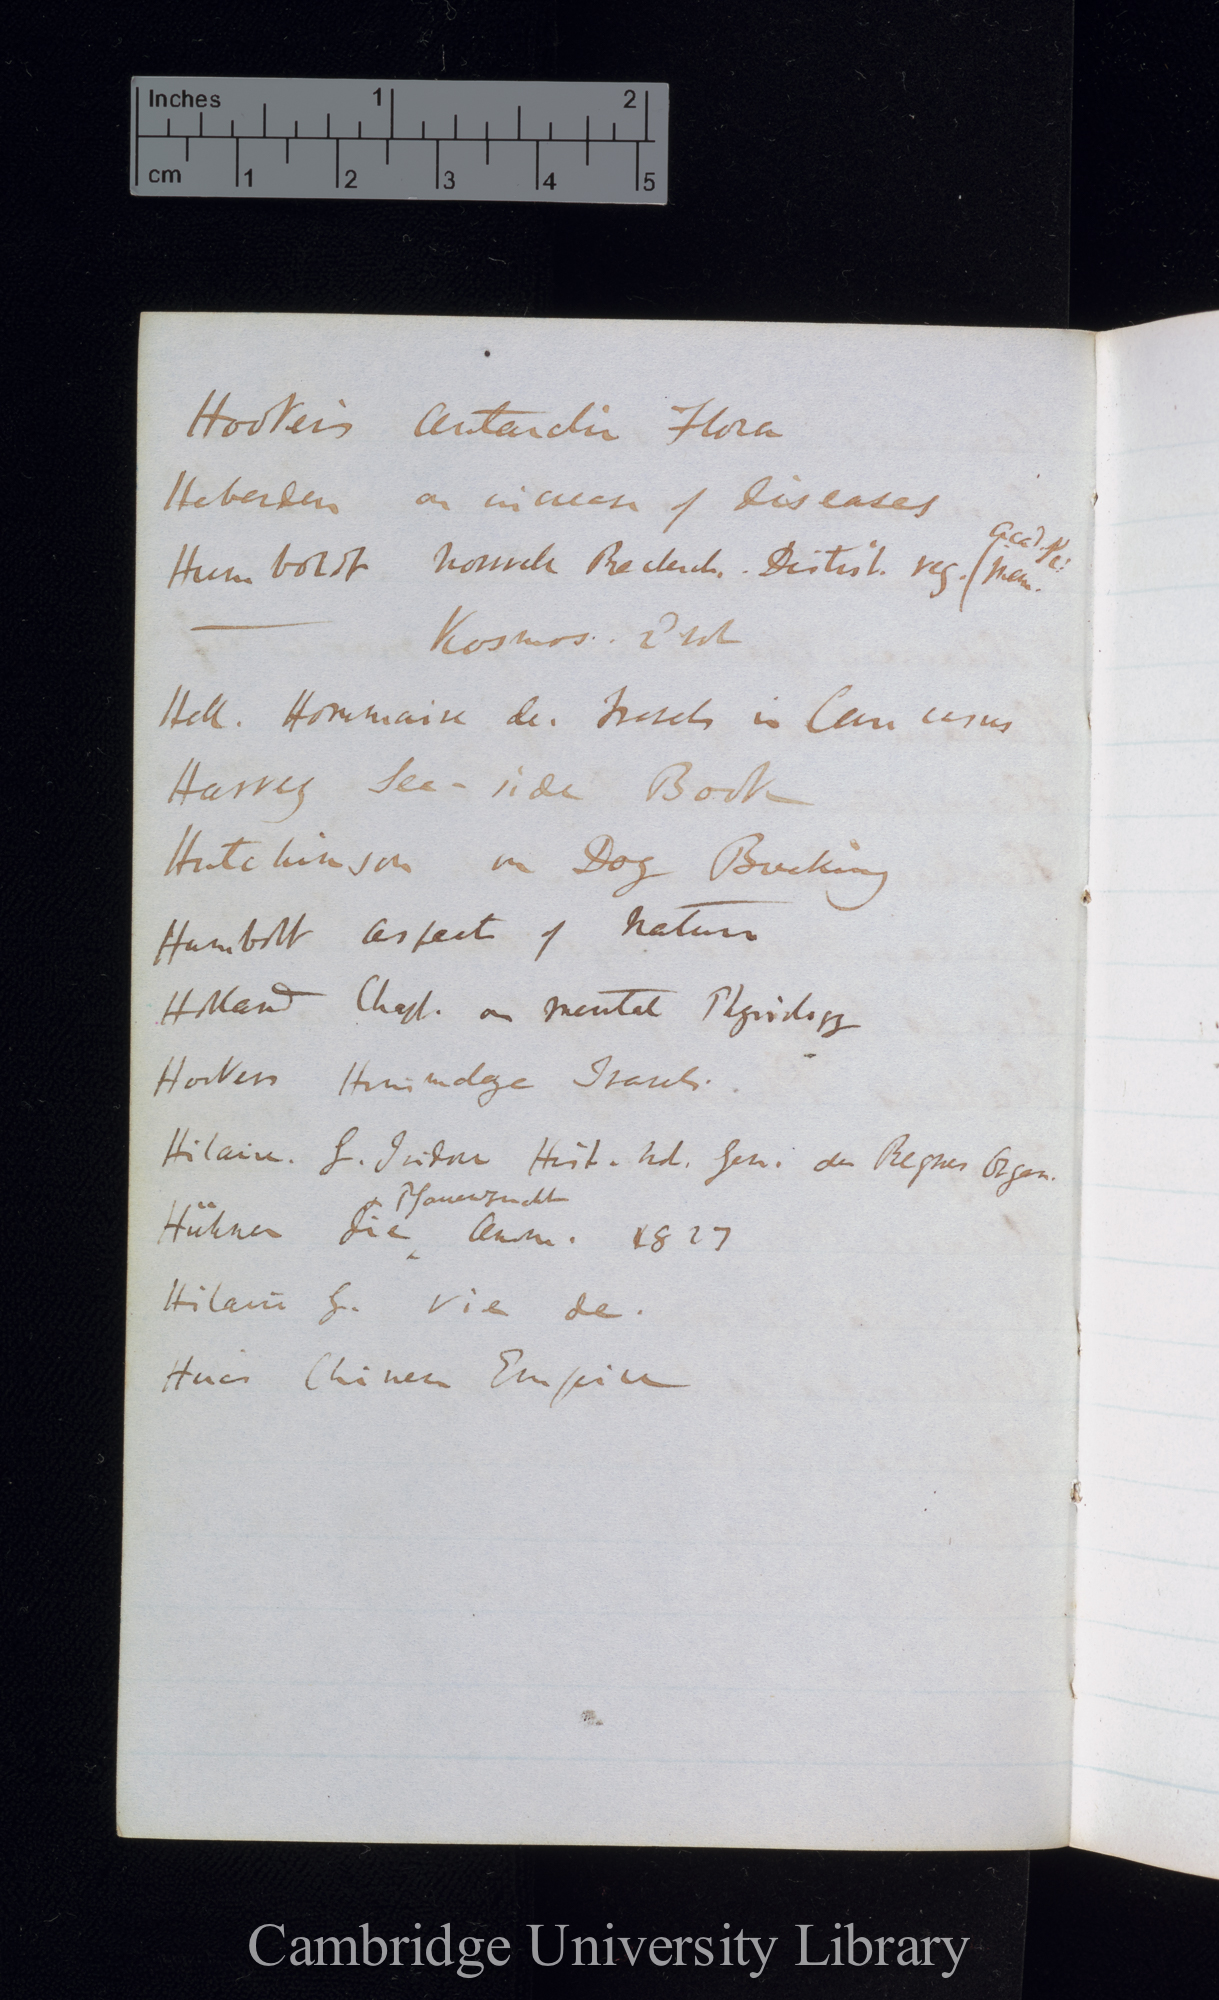 Inches 1 2
cm 1 2 3 4 5
Hooker's Antarctic Flora
Heberden on increase of Diseases
Humboldt Nouvelle Recherch. Distrib. veg. (Acad.
Mem.
Kosmos. 2d vol
Hell. Hommaire de. Travels in Caucasus
Harvey Sea-side Book
Hutchinson on Dog Breaking
Humboldt Aspects of Nature
Holland Chapt. on Mental Physiology
Hookers Himmalaya Travels.
Hilaire. G. Isidore Hist. Nat. Gen. des Regnes Organ.
Pfauenzucht
Hühner die Anon. 1827
Hilaire G. Vie de.
Huc's Chinese Empire
Cambridge University Library